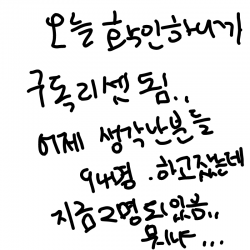 오늘 확인하니까
구독리셋 됨..
어제 생각난분들
94명 .하고잤는데
지금 2명 되있음..
뭐냐...